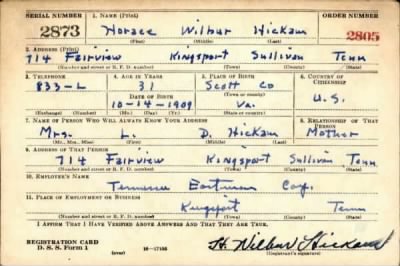 SERIAL NUMBER 1. NAME (Print) ORDER NUMBER
2873 Horace Wilbur Hickam 2805
(First) (Middle) (Last)
2. ADDRESS (Print)
714 Fairview Kingsport Sullivan Tenn
(Number and street or R. F. D. number) (Town) (County) (State)
3. TELEPHONE 4. AGE IN YEARS 5. PLACE OF BIRTH 6. COUNTRY OF CITIZENSHIP
833-L 31 Scott Co
DATE OF BIRTH
10-14-1909 Va. U.S.
(Exchange) (Number) (Mo.) (Day) (Yr.) (State or country)
7. NAME OF PERSON WHO WILL ALWAYS KNOW YOUR ADDRESS 8. RELATIONSHIP OF THAT PERSON
Mrs. L. D. Hickam Mother
(Mr., Mrs., Miss) (First) (Middle) (Last)
9. ADDRESS OF THAT PERSON
714 Fairview Kingsport Sullivan Tenn
(Number and street or R. F. D. number) (Town) (County) (State)
10. EMPLOYER'S NAME
Tennessee Eastman Corp.
11. PLACE OF EMPLOYMENT OR BUSINESS
Kingsport Tenn
(Number and street or R. F. D. number) (Town) (County) (State)
I AFFIRM THAT I HAVE VERIFIED ABOVE ANSWERS AND THAT THEY ARE TRUE.
REGISTRATION CARD
D. S. S. Form 1 16-17105 H. Wilbur Hickam
(Registrant's signature)